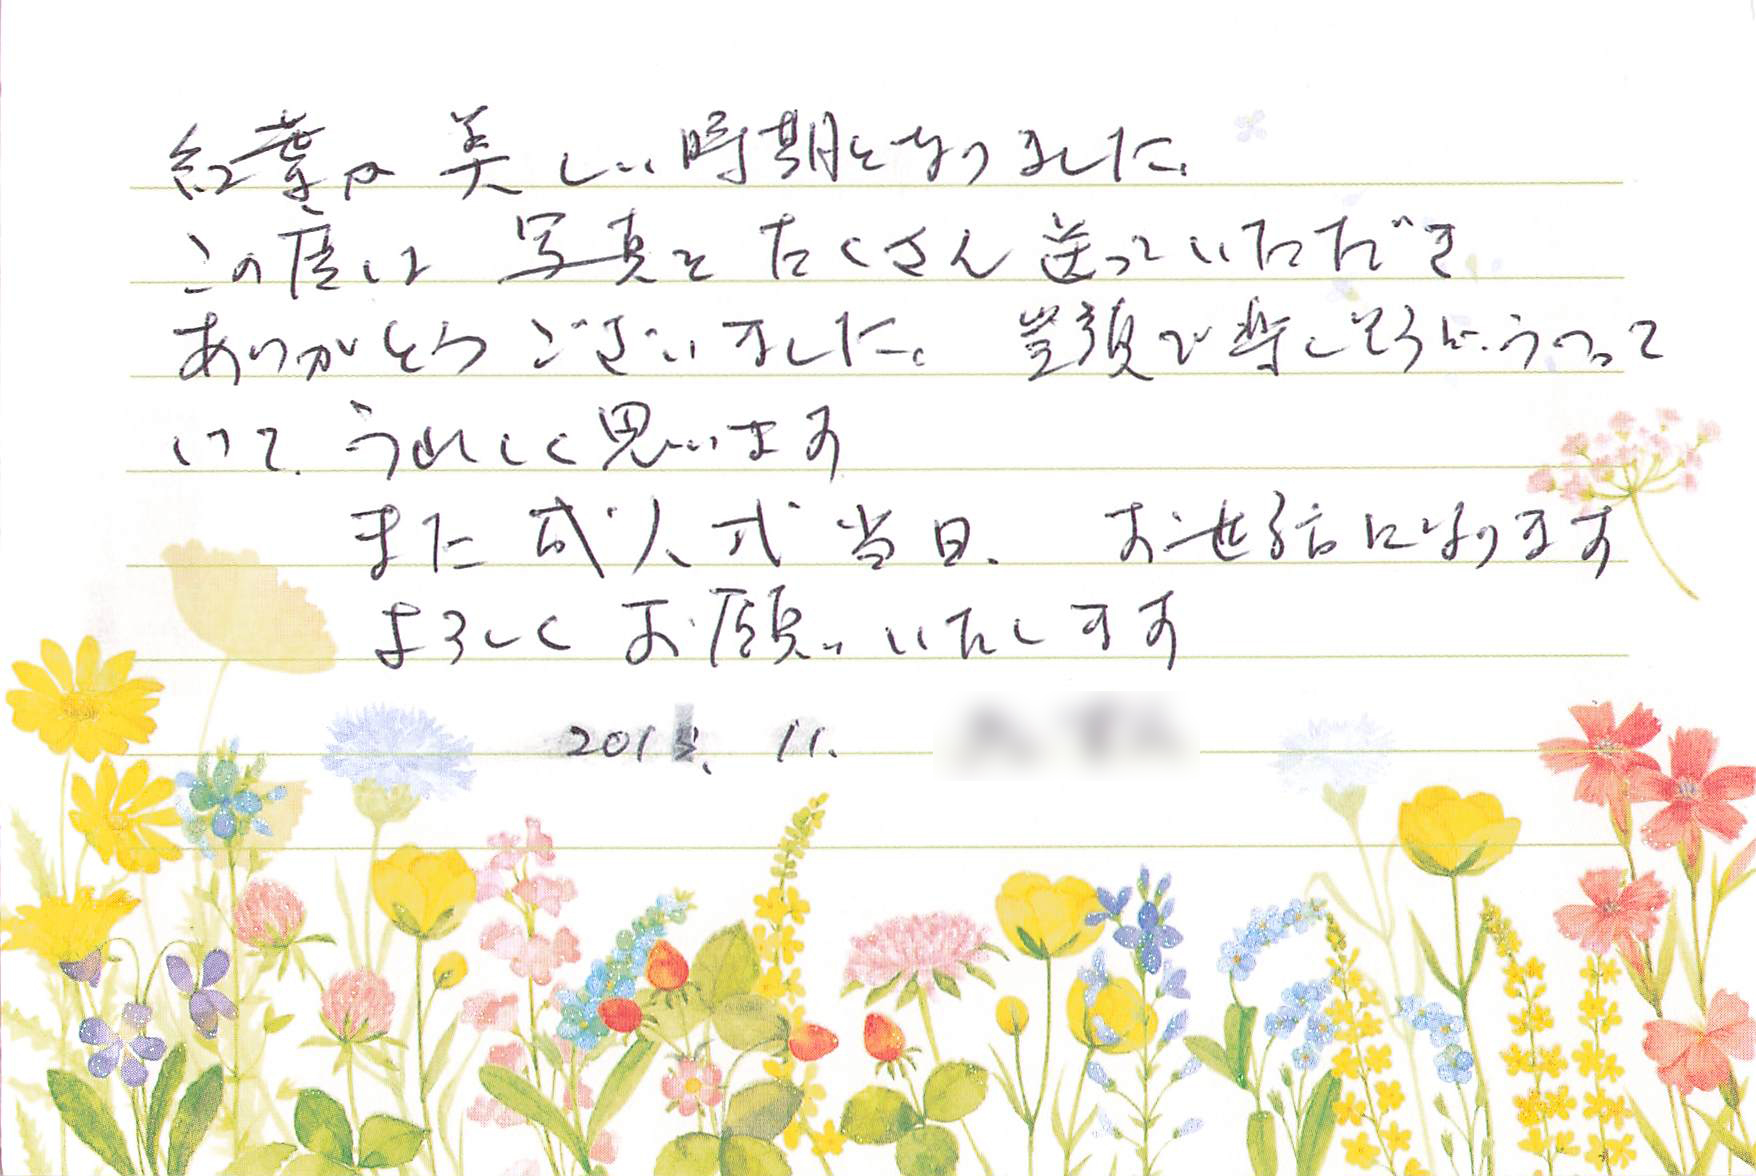 紅葉の美しい時期となりました。
この度は 写真を たくさん 送っていただき
ありがとう ございました。 笑顔で楽しそうにうつって
いて、うれしく思います
また 成人式 当日、 お世話になります
よろしく お願い いたします
11.